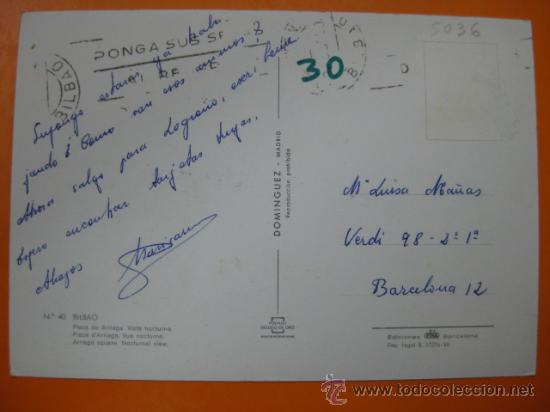 BILBAO
PONGA SUS SE
30
5036
Supongo estarás ya traba-
jando ¿Cómo van esos ánimos?
Ahora salgo para Logroño, escríbeme
Espero encontrar tarjetas tuyas.
Abrazos
DOMINGUEZ - MADRID
Reproducción prohibida
Mª Luisa Mañas
Verdi 98-2º 1ª
Barcelona 12
N.º 40 BILBAO
Plaza de Arriaga. Vista nocturna.
Place d'Arriaga. Vue nocturne.
Arriaga square. Nocturnal view.
Ediciones Barcelona
Dep. legal B.
todocoleccion.net